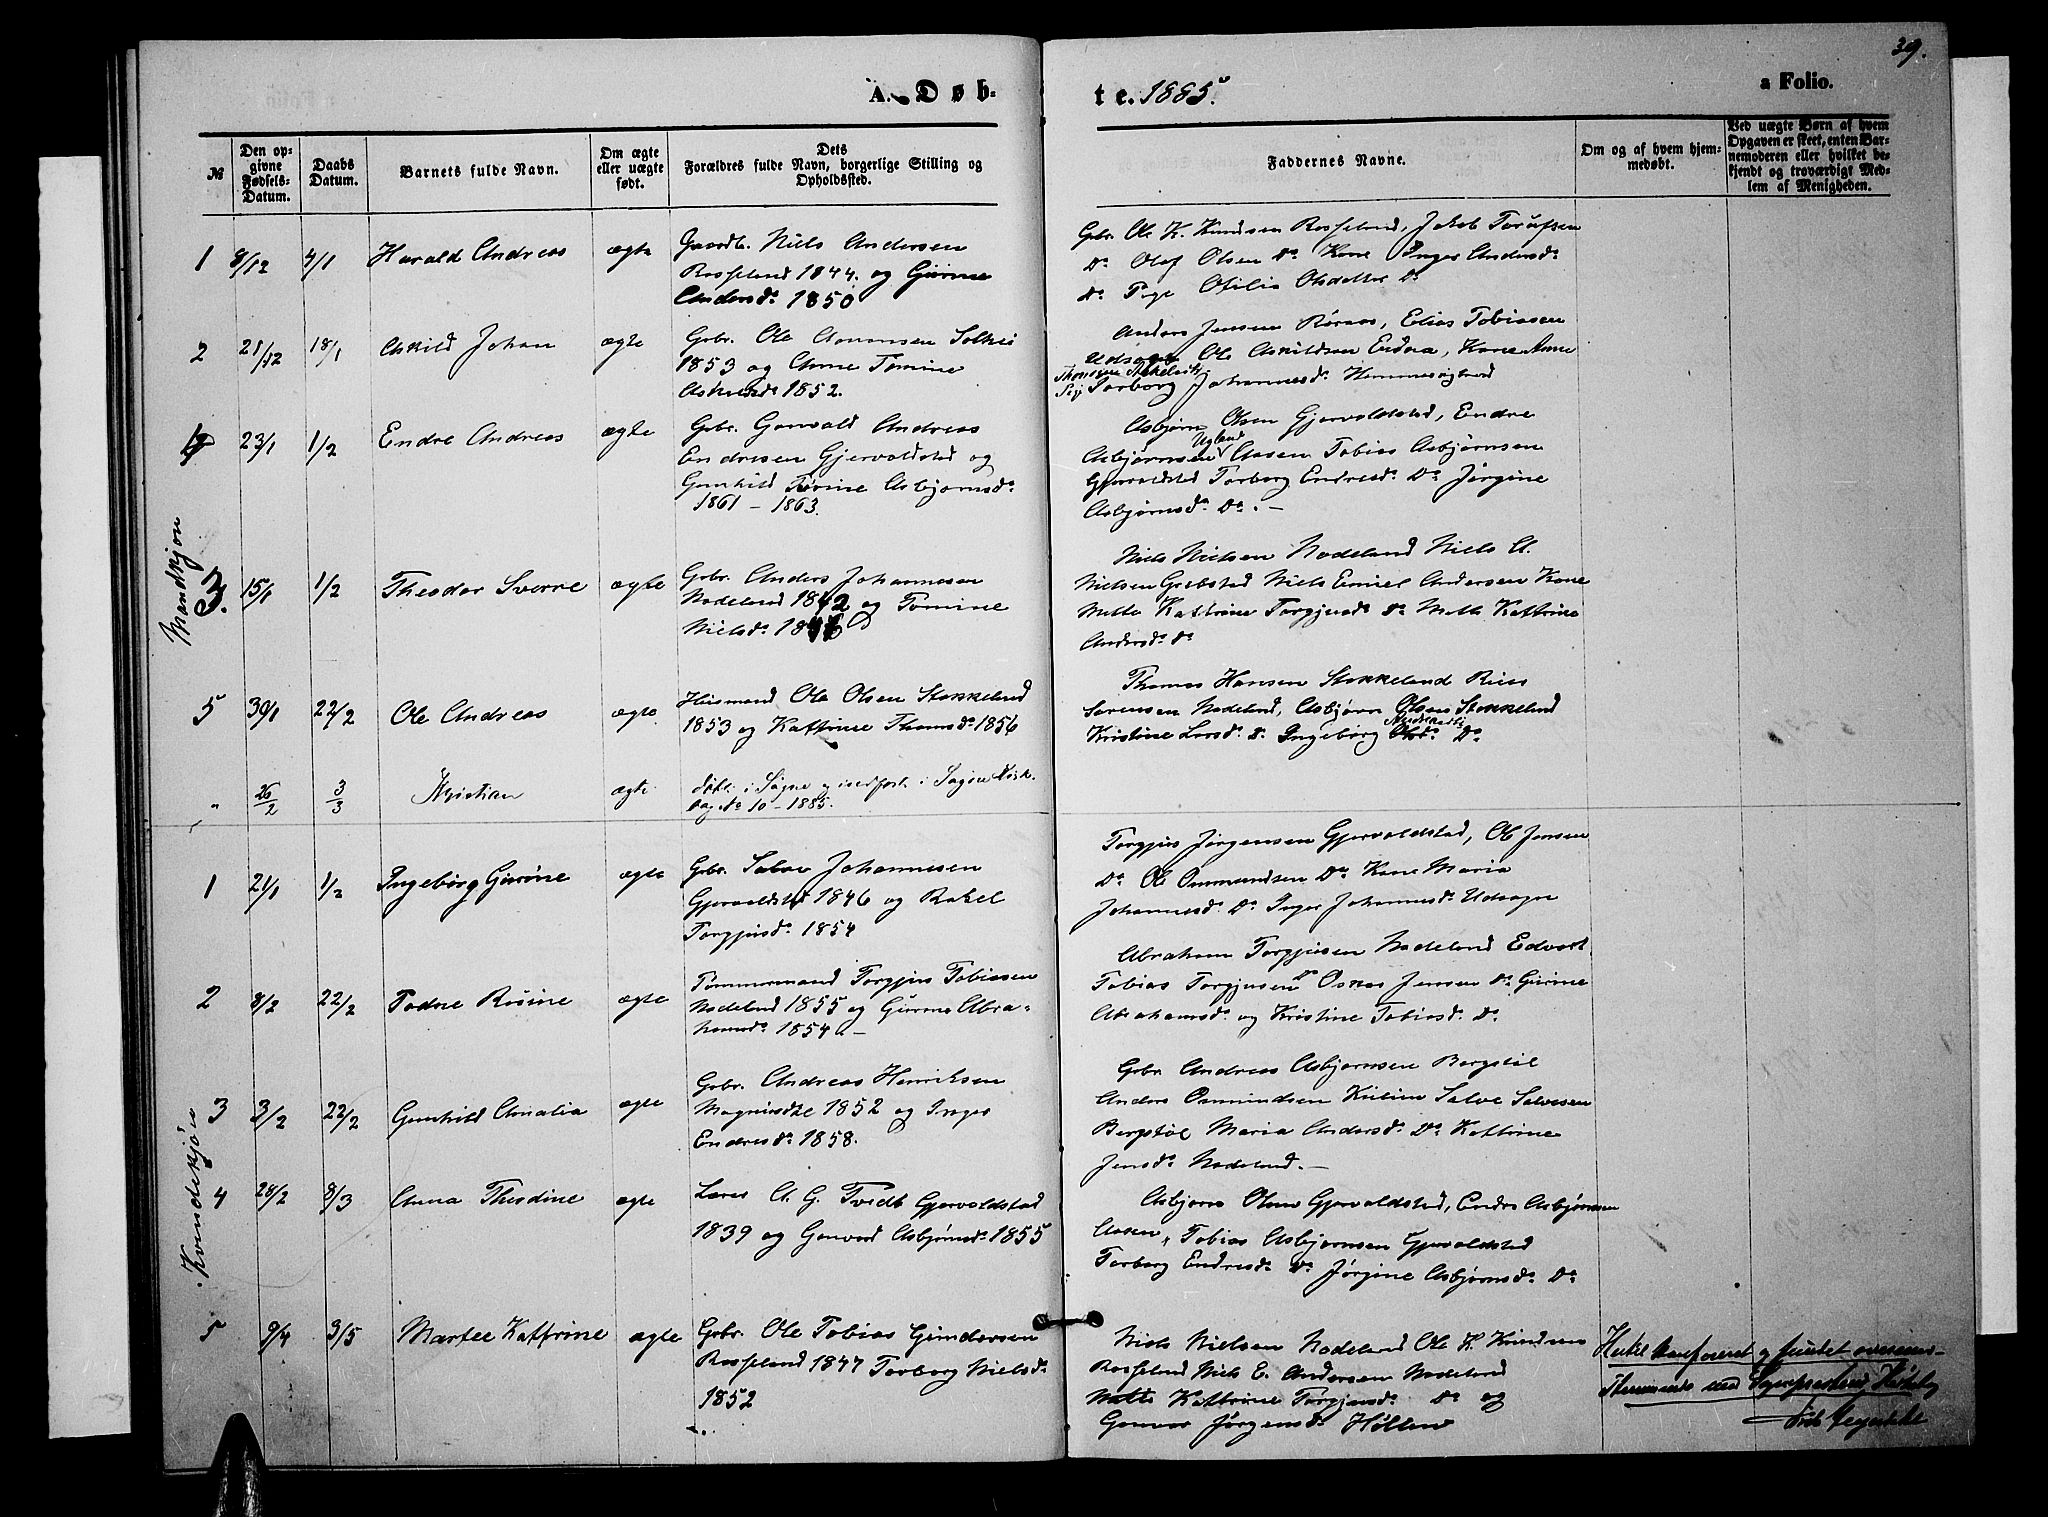 39.
A. Døb-
te. 1885.
a Folio.
№
Den op-
givne
Fødsels-
Datum.
Daabs
Datum.
Barnets fulde Navn.
Om ægte
eller uægte
født.
Dets
Forældres fulde Navn, borgerlige Stilling og
Opholdssted.
Faddernes Navne.
Om og af hvem hjem-
medøbt.
Ved uægte Børn af hvem
Opgaven er skeet, enten Bar-
nemoderen eller hvilket be-
kjendt og troværdigt Med-
lem af Menigheden.
Mandkjøn
1 8/12 4/1 Harald Andreas ægte
Gaardb. Niels Andersen
Rosseland 1844 og Gurine
Andersd. 1850
Gbr. Ole K. Knudsen Rosseland, Jakob
Do Olof Olsen Do Kone Inger Andersd.
Do Pige Otilie Olsdatter Do
2 21/12 18/1 Askild Johan ægte
Grbr. Ole
1853 og Anne Tomine
1852.
Anders Jensen Røraas, Elias Tobiassen
Udsogn Ole Askildsen Kone Anne
Torborg Johannesd.
23/1 1/2 Endre Andreas ægte
Grbr. Gonvald Andreas
Endresen Gjervoldstad og
Gunhild Asbjørnsd.
1861 - 1863.
Asbjørn Olsen Gjervoldstad, Endre
Ugland
Asbjørnsen Aasen Tobias Asbjørnsen
Gjervoldstad Torborg Endresd. Do Jørgine
Asbjørnsd. Do. -
3. 15/1 1/2 Theodor Sverre ægte
Grbr. Anders Johannesen
Nodeland 1842 og Tomine
Nielsd.
Niels Nielsen Nodeland Niels A.
Nielsen Grebstad Niels Emiel Andersen Kone
Mette Kathrine Torgjusd. Do Mette Kathrine
Andersd. Do
5 30/1 22/2 Ole Andreas ægte
Huusmand Ole Olsen Stokkeland
1853 og Kathrine Thomsd. 1856
Thomas Hansen Stokkeland
Sørensen Nodeland, Asbjørn Olsen Stokkeland
Kristine Larsd. Do Ingeborg Do
" 26/2 3/3 Kristian ægte
døbt i Søgne og indført i Søgne Kirk.
bog No 10 - 1885.
Kvindekjøn
1 21/1 1/2 Ingeborg Gurine ægte
Grbr. Salve Johannesen
Gjervoldstad 1846 og Rakel
Torgjusd. 1854
Torgjus Jørgensen Gjervoldstad, Ole Jensen
Do Ole Ommundsen Do Kone Maria
Johannesd. Do Inger Johannesd. Udsogn
2 8/2 22/2 Rosine ægte
Tømmermand Torgjus Tobiassen
Nodeland 1855 og Gurine Abra-
hamsd. 1854. -
Abraham Torgjusen Nodeland Edvart
Tobias Torgjusen Do Jensen Do Gurine
Abrahamsd. og Kristine Tobiasd. Do
3 3/2 22/2 Gunhild Amalia ægte
Grbr. Andreas Henriksen
1852 og Inger
Endresd. 1858.
Grbr. Andreas Asbjørnsen Bergstøl
Anders Ommundsen Salve Salvesen
Bergstøl Maria Andersd. Do Kathrine
Jensd. Nodeland. -
4 28/2 8/3 Anna Theodine ægte
Lærer A. G. Tvedt Gjervoldstad
1839 og Gonvor Asbjørnsd. 1855
Asbjørn Olsen Gjervoldstad, Endre Asbjørnsen
Aasen, Tobias Asbjørnsen Gjervoldstad
Torborg Endresd. Do Jørgine Asbjørnsd. Do
5 9/4 3/5 Kathrine ægte
Grbr. Ole Tobias Gundersen
Rosseland 1847 Torborg Nielsd.
1852
Niels Nielsen Nodeland Ole K. Knudsen
Rosseland Niels E. Andersen Nodeland
Mette Kathrine Torgjusd. Do og
Gonvor Jørgensd. Høllen
og fundet